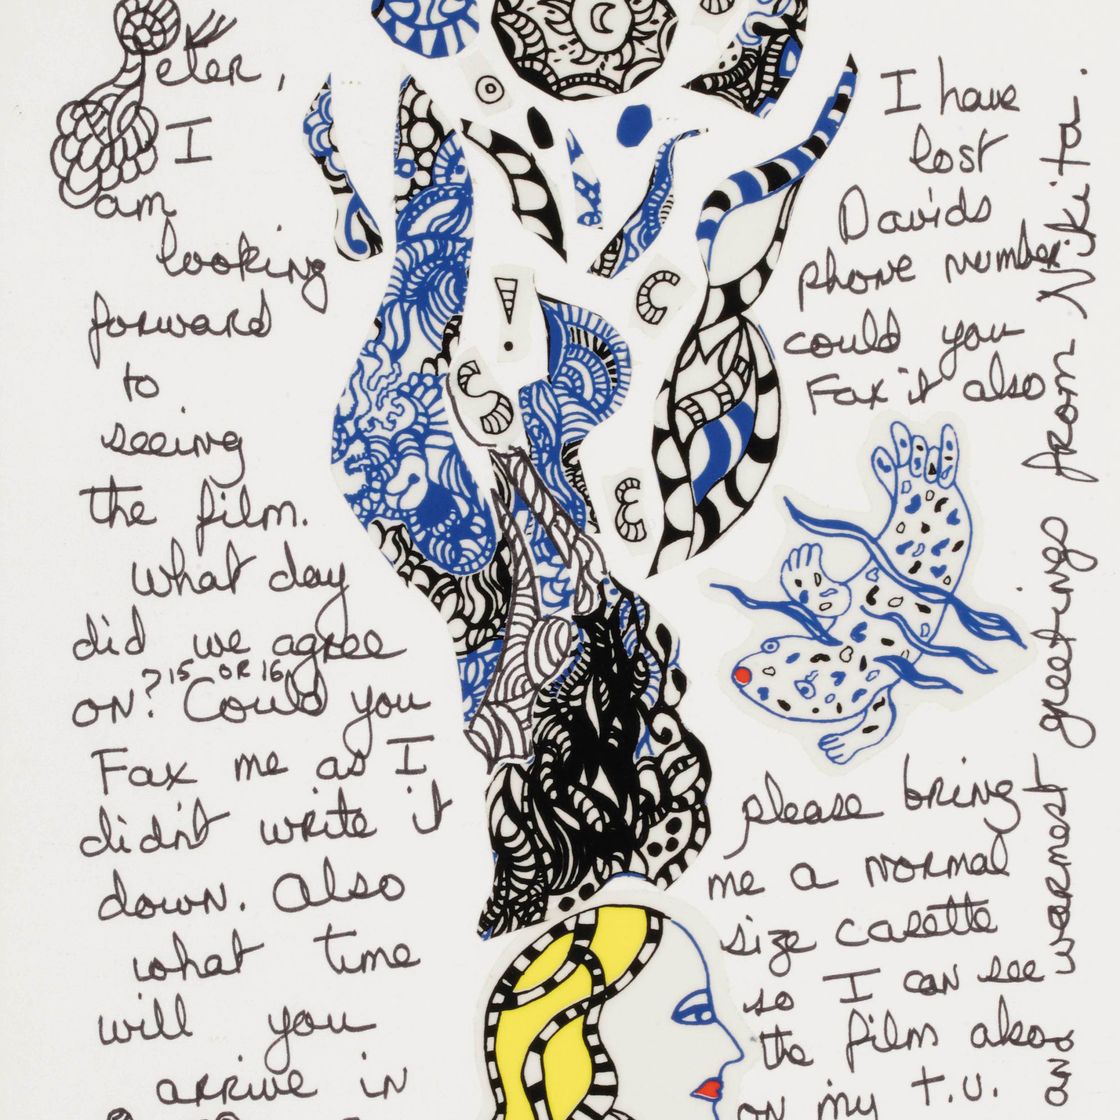 Peter,
I
am
looking
forward
to
seeing
the film.
what day
did we agree
on? 15 OR 16 Could you
Fax me as I
didnt write it
down. Also
what time
will you
arrive in
I have
lost
Davids
phone number
could you
Fax it also
please bring
me a normal
size casette
so I can see
the film also
on my T.V.
and warmest greetings from Niki ta.